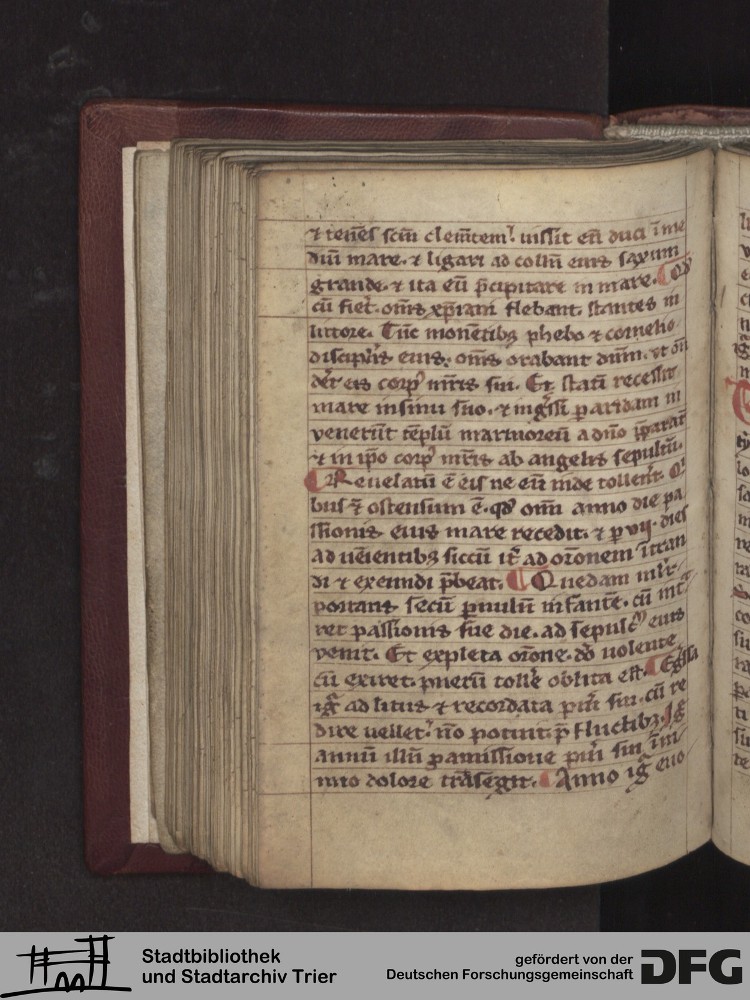 ⁊ tenēs scm̄ clemētem. iussit eū duci ī me
diū mare. ⁊ ligari ad collū eius saxum
grande. ⁊ ita eū p̄cipitare in mare. Qd̓
cū fiet. om̄s xp̄iani flebant. stantes in
littore. Tūc monētibꝫ phebo ⁊ cornelio
discipl̓is eius. om̄s orabant dn̄m. ut on̄
d̓et eis corp̓ mr̄is sui. Et statī recessit
mare in sinu suo. ⁊ īgr̄ssi p aridam in
venerūt tēplū marmoreū a dn̄o p̄parat̄
⁊ in ip̄o corp̓ mr̄is ab angelis sepultū.
Reuelatū ē eis ne eū inde tollerēt.
bus ⁊ ostensum ē. qd̓ om̄i anno die pa
ssionis eius mare recedit. ⁊ p vij. dies
ad uenientibꝫ siccū it̄ ad or̄onem ītran
di ⁊ exeundi p̄beat. Quedam ml̓r
portans secū pͣuulū infantē. cū int̄
ret passionis sue die. ad sepulc̓ eius
venit. Et expleta or̄one. d̓o uolente
cū exiret. puerū toll̓e oblita est. Egressa
igͣ ad litus ⁊ recordata pu̓i sui. cū re
dire uellet. nō potuit p̄ fluctibꝫ. Ig̓
annū illū p amissione pu̓i sui īm
nito dolore trāsegit. Anno ig̓ euo
Stadtbibliothek
und Stadtarchiv Trier
gefördert von der
Deutschen Forschungsgemeinschaft
DFG